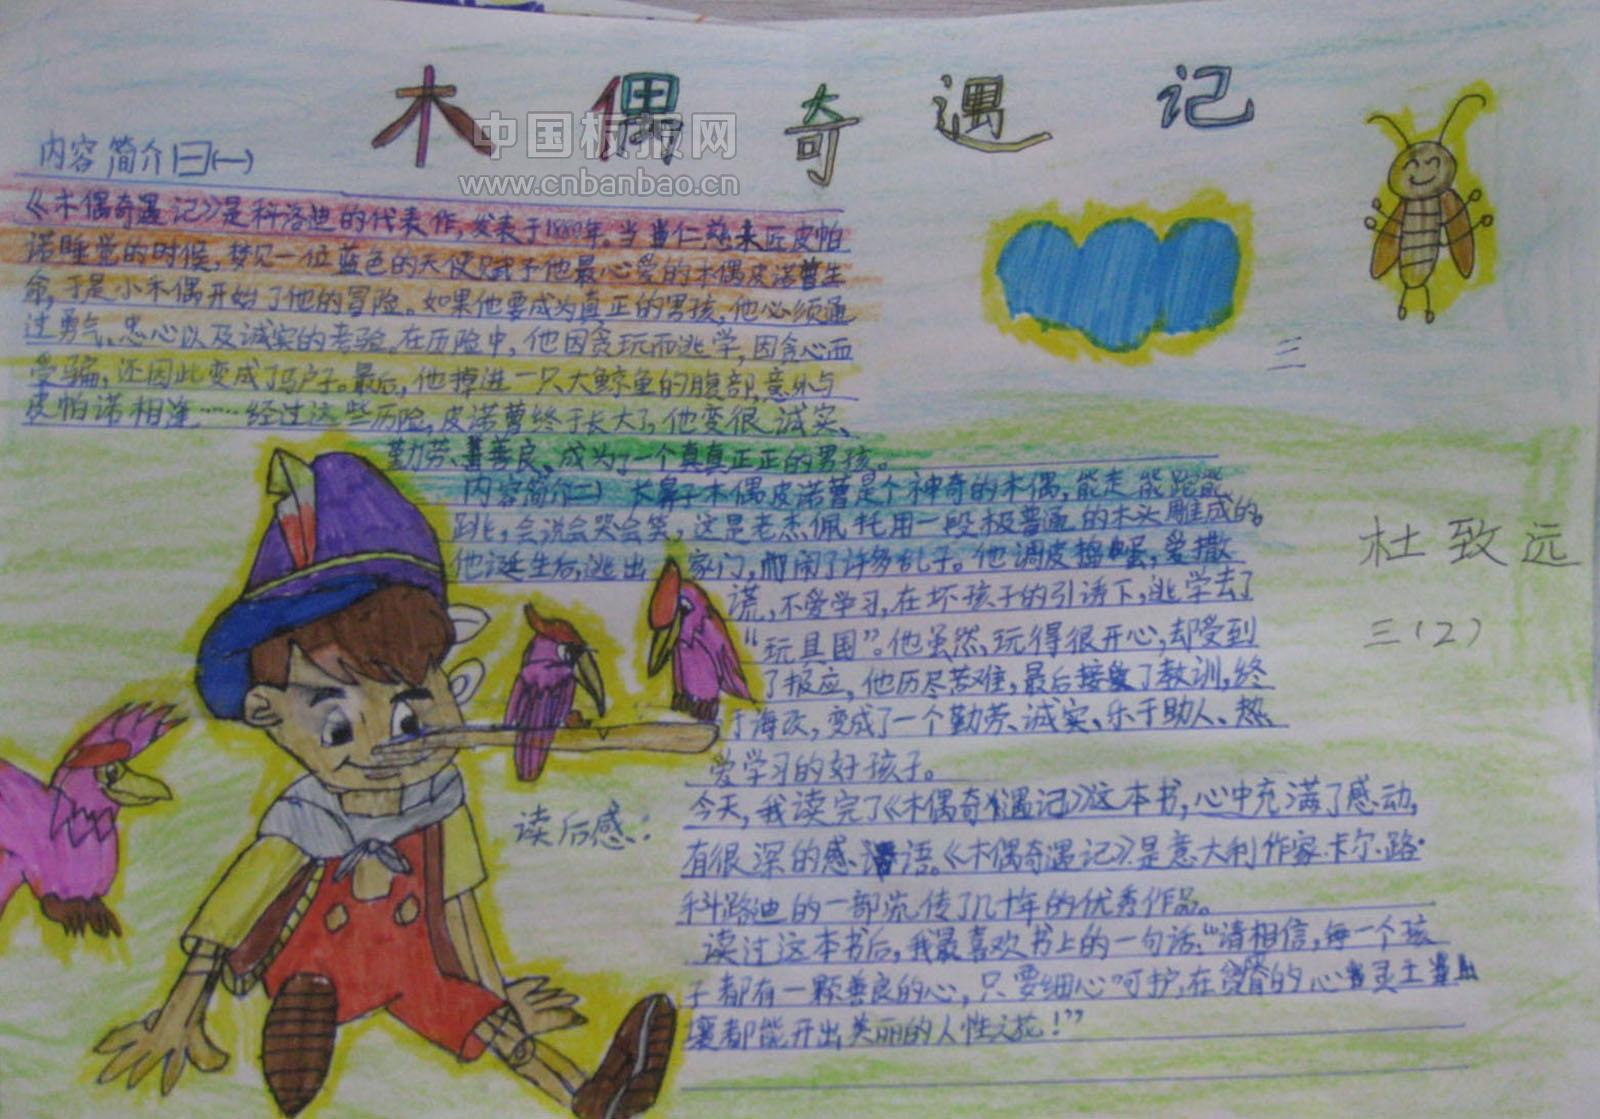 木偶奇遇记
中国板报网
www.cnbanbao.cn
内容简介(一)
《木偶奇遇记》是科洛迪的代表作,发表于1880年。当仁慈木匠皮帕
诺睡觉的时候,梦见一位蓝色的天使赋予他最心爱的木偶皮诺曹生
命,于是小木偶开始了他的冒险。如果他要成为真正的男孩,他必须通
过勇气、忠心以及诚实的考验。在历险中,他因贪玩而逃学,因贪心而
受骗,还因此变成了驴子。最后,他掉进一只大鲸鱼的腹部,意外与
皮帕诺相逢……经过这些历险,皮诺曹终于长大了,他变很诚实、
勤劳、善良、成为了一个真真正正的男孩。
内容简介二) 长鼻子木偶皮诺曹是个神奇的木偶,能走能跑能
跳,会说会哭会笑,这是老杰佩托用一段极普通的木头雕成的。
他诞生后,逃出家门,闹了许多乱子。他调皮捣蛋,爱撒
谎,不爱学习,在坏孩子的引诱下,逃学去了
“玩具国”。他虽然玩得很开心,却受到
了报应,他历尽苦难,最后接受了教训,终
于海改,变成了一个勤劳、诚实、乐于助人、热
爱学习的好孩子。
读后感:
今天,我读完了《木偶奇遇记》这本书,心中充满了感动,
有很深的感语。《木偶奇遇记》是意大利作家卡尔·路·
科路迪的一部流传了几十年的优秀作品。
读过这本书后,我最喜欢书上的一句话:“请相信,每一个孩
子都有一颗善良的心,只要细心呵护,在的心灵土
壤都能开出美丽的人性之花!”
三
杜致远
三(2)